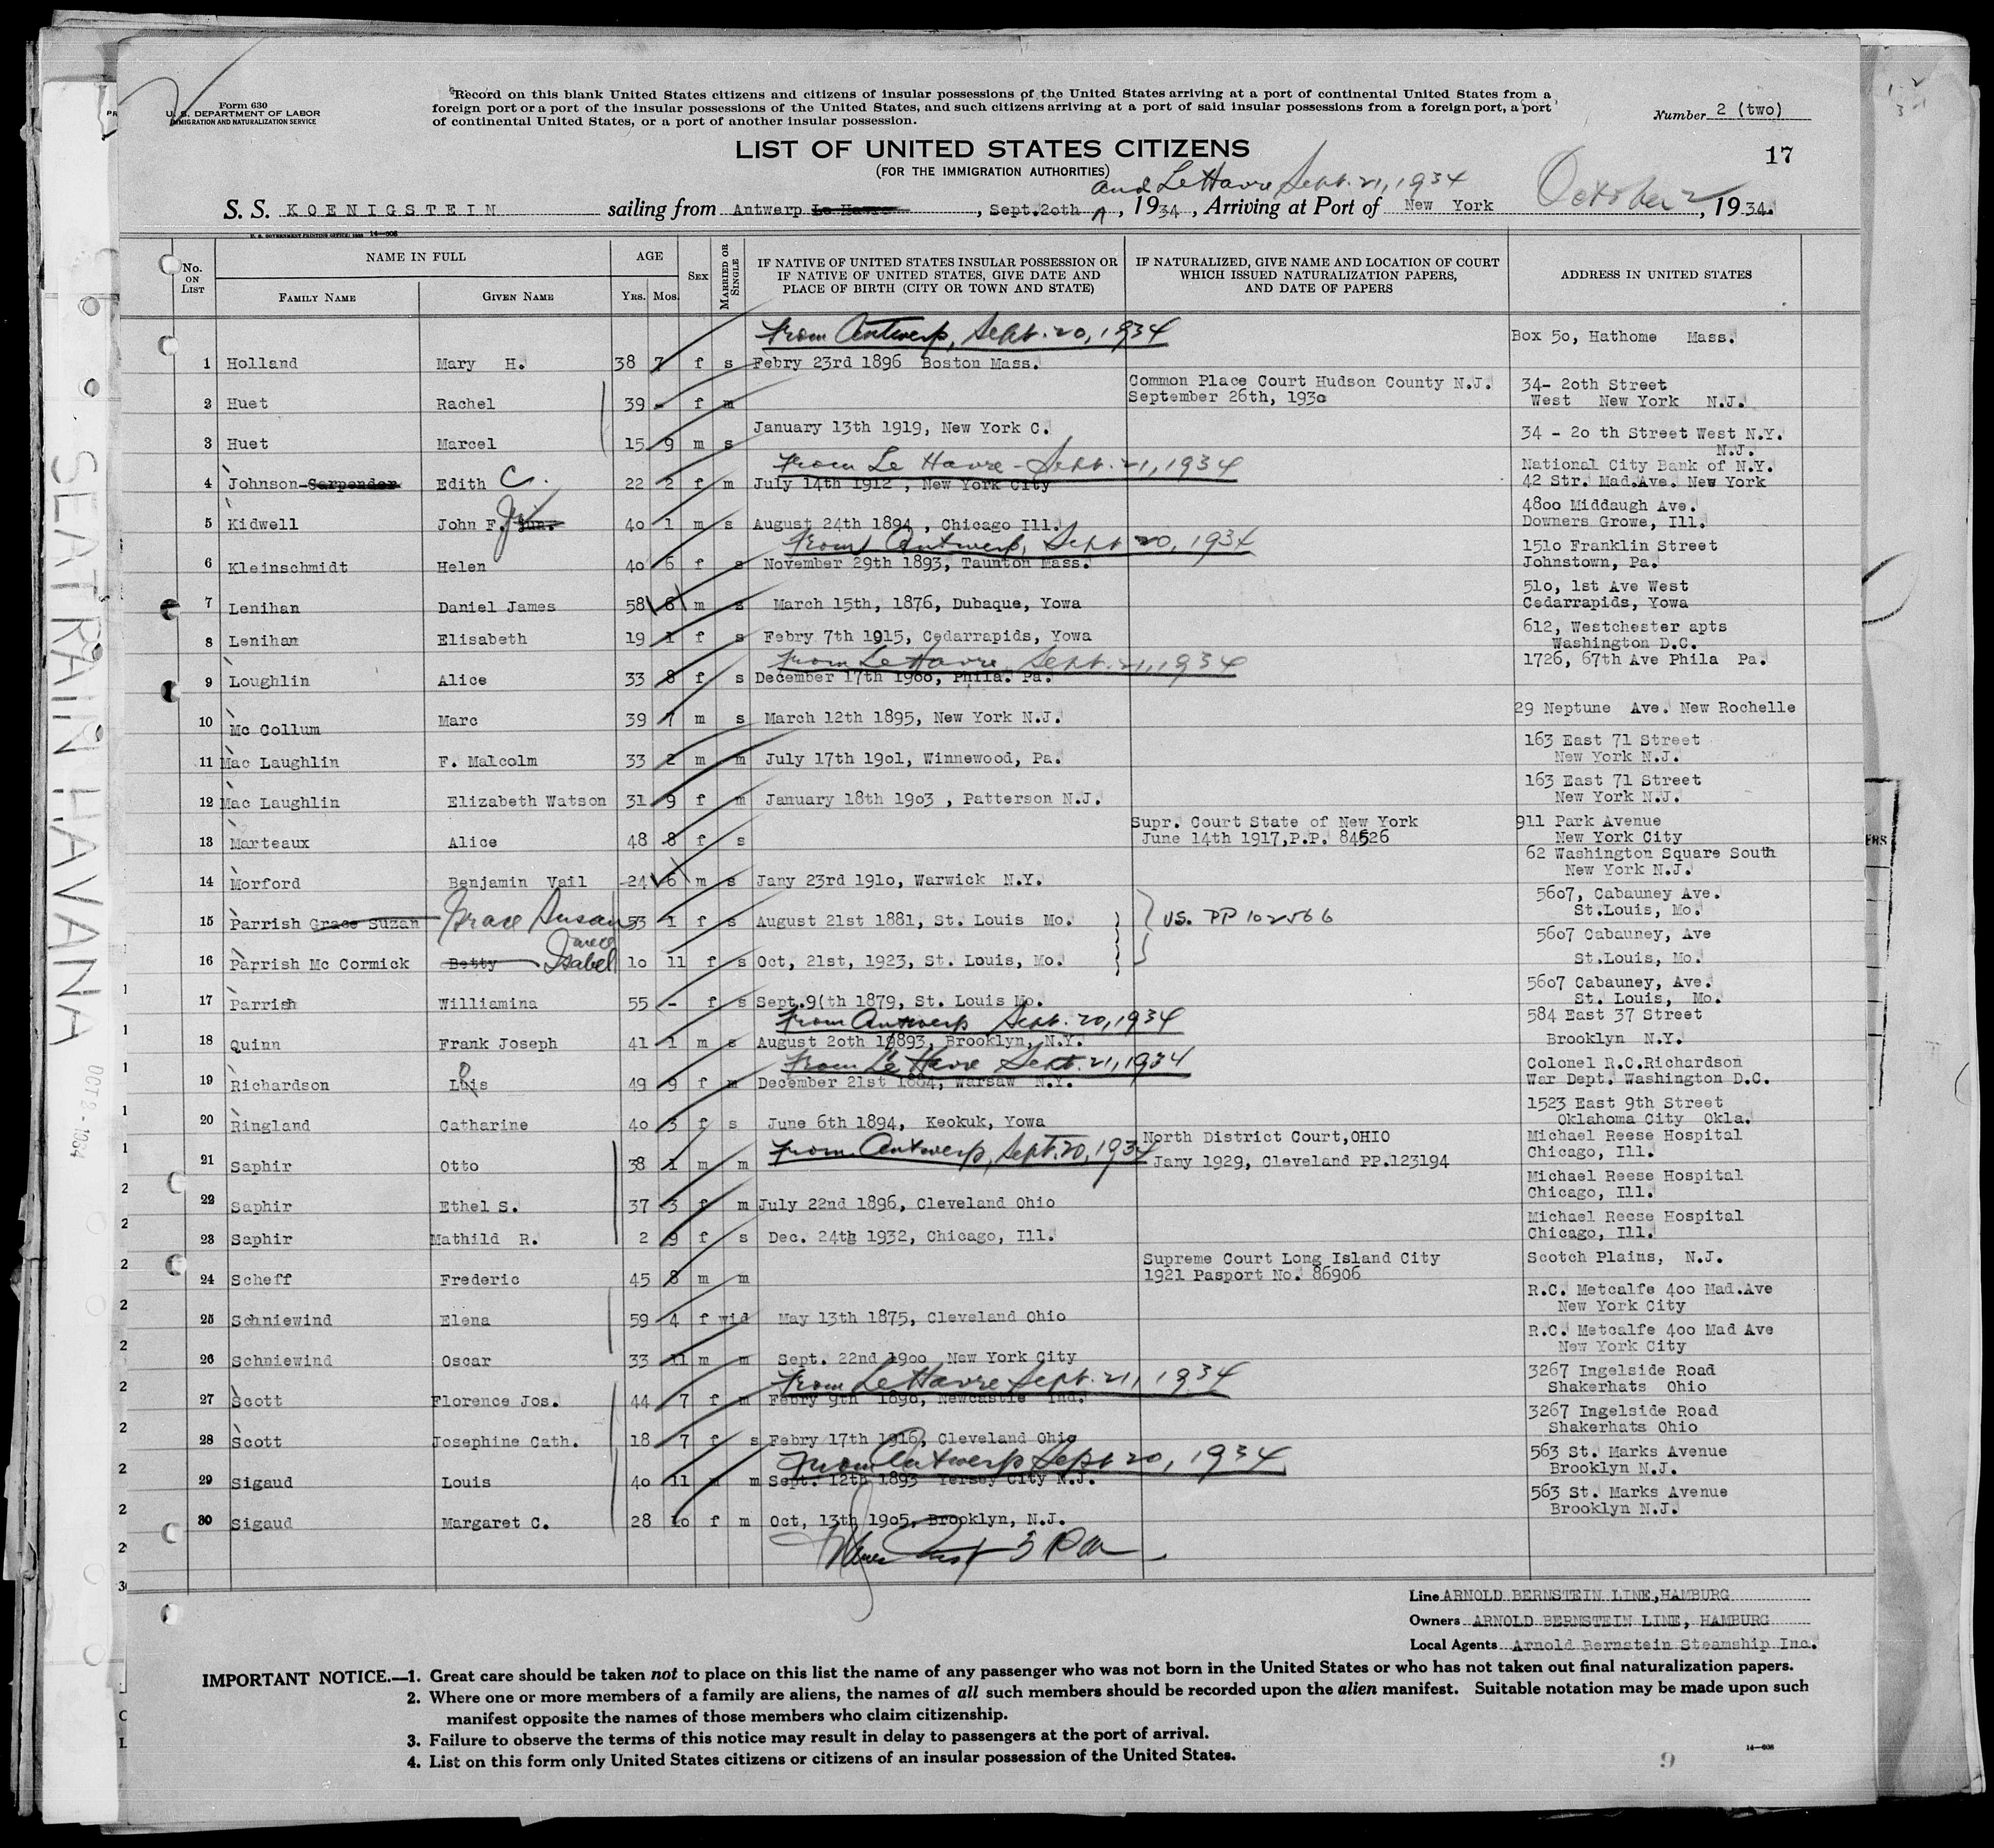 Form 630
U. S. DEPARTMENT OF LABOR
IMMIGRATION AND NATURALIZATION SERVICE
Record on this blank United States citizens and citizens of insular possessions of the United States arriving at a port of continental United States from a
foreign port or a port of the insular possessions of the United States, and such citizens arriving at a port of said insular possessions from a foreign port, a port
of continental United States, or a port of another insular possession.
Number 2 (two)
LIST OF UNITED STATES CITIZENS
17
(FOR THE IMMIGRATION AUTHORITIES)
and Le Havre Sept. 21, 1934
S. S. KOENIGSTEIN sailing from Antwerp Le Havre, Sept.20th, 1934, Arriving at Port of New York October 2, 1934.
U. S. GOVERNMENT PRINTING OFFICE: 14—608
No. ON LIST
NAME IN FULL
FAMILY NAME
GIVEN NAME
AGE
YRS. MOS.
SEX
MARRIED OR SINGLE
IF NATIVE OF UNITED STATES INSULAR POSSESSION OR
IF NATIVE OF UNITED STATES, GIVE DATE AND
PLACE OF BIRTH (CITY OR TOWN AND STATE)
IF NATURALIZED, GIVE NAME AND LOCATION OF COURT
WHICH ISSUED NATURALIZATION PAPERS,
AND DATE OF PAPERS
ADDRESS IN UNITED STATES
From Antwerp, Sept. 20, 1934
Box 50, Hathome Mass.
1 Holland Mary H. 38 7 f s Febry 23rd 1896 Boston Mass.
Common Place Court Hudson County N.J. 34- 20th Street
2 Huet Rachel 39 - f m September 26th, 1930 West New York N.J.
January 13th 1919, New York C.
3 Huet Marcel 15 9 m s 34 - 20 th Street West N.Y.
N.J.
From Le Havre - Sept. 21, 1934
National City Bank of N.Y.
4 Johnson-Carpender Edith C. 22 2 f m July 14th 1912 , New York City 42 Str. Mad.Ave. New York
4800 Middaugh Ave.
5 Kidwell John F. Jr. Jun. 40 1 m s August 24th 1894 , Chicago Ill. Downers Grove, Ill.
From Antwerp, Sept 20, 1934
1510 Franklin Street
6 Kleinschmidt Helen 40 6 f s November 29th 1893, Taunton Mass. Johnstown, Pa.
510, 1st Ave West
7 Lenihan Daniel James 58 6 m s March 15th, 1876, Dubaque, Yowa Cedarrapids, Yowa
612, Westchester apts
8 Lenihan Elisabeth 19 1 f s Febry 7th 1915, Cedarrapids, Yowa Washington D.C.
From Le Havre, Sept. 21, 1934
1726, 67th Ave Phila Pa.
9 Loughlin Alice 33 8 f s December 17th 1900, Phila. Pa.
10 Mc Collum Marc 39 7 m s March 12th 1895, New York N.J. 29 Neptune Ave. New Rochelle
163 East 71 Street
11 Mac Laughlin F. Malcolm 33 2 m m July 17th 1901, Winnewood, Pa. New York N.J.
163 East 71 Street
12 Mac Laughlin Elizabeth Watson 31 9 f m January 18th 1903 , Patterson N.J. New York N.J.
Supr. Court State of New York 911 Park Avenue
13 Marteaux Alice 48 8 f s June 14th 1917,P.P. 84526 New York City
62 Washington Square South
14 Morford Benjamin Vail 24 6 m s Jany 23rd 1910, Warwick N.Y. New York N.J.
5607, Cabauney Ave.
15 Parrish Grace Suzan Grace Susan 53 1 f s August 21st 1881, St. Louis Mo. US. PP 102566 St.Louis, Mo.
5607 Cabauney, Ave
16 Parrish Mc Cormick Betty Isabel 10 11 f s Oct, 21st, 1923, St. Louis, Mo. St.Louis, Mo.
5607 Cabauney, Ave.
17 Parrish Williamina 55 - f s Sept.9(th 1879, St. Louis Mo. St. Louis, Mo.
From Antwerp Sept. 20, 1934
584 East 37 Street
18 Quinn Frank Joseph 41 1 m s August 20th 1893, Brooklyn, N.Y. Brooklyn N.Y.
From Le Havre Sept. 21, 1934
Colonel R.C.Richardson
19 Richardson Lois 49 9 f m December 21st 1884, Warsaw N.Y. War Dept. Washington D.C.
1523 East 9th Street
20 Ringland Catharine 40 3 f s June 6th 1894, Keokuk, Yowa Oklahoma City Okla.
From Antwerp, Sept. 20, 1934
North District Court,OHIO Michael Reese Hospital
21 Saphir Otto 38 1 m m Jany 1929, Cleveland PP.123194 Chicago, Ill.
Michael Reese Hospital
22 Saphir Ethel S. 37 3 f m July 22nd 1896, Cleveland Ohio Chicago, Ill.
Michael Reese Hospital
23 Saphir Mathild R. 2 9 f s Dec. 24th 1932, Chicago, Ill. Chicago, Ill.
Supreme Court Long Island City Scotch Plains, N.J.
24 Scheff Frederic 45 8 m m 1921 Pasport No. 86906
R.C. Metcalfe 400 Mad.Ave
25 Schniewind Elena 59 4 f wid May 13th 1875, Cleveland Ohio New York City
R.C. Metcalfe 400 Mad Ave
26 Schniewind Oscar 33 11 m m Sept. 22nd 1900 New York City New York City
From Le Havre Sept. 21, 1934
3267 Ingelside Road
27 Scott Florence Jos. 44 7 f m Febry 9th 1890, Newcastle Ind. Shakerhats Ohio
3267 Ingelside Road
28 Scott Josephine Cath. 18 7 f s Febry 17th 1916, Cleveland Ohio Shakerhats Ohio
From Antwerp Sept 20, 1934
563 St. Marks Avenue
29 Sigaud Louis 40 11 m m Sept. 12th 1893 Yersey City N.J. Brooklyn N.J.
563 St. Marks Avenue
30 Sigaud Margaret C. 28 10 f m Oct, 13th 1905, Brooklyn, N.J. Brooklyn N.J.
Line ARNOLD BERNSTEIN LINE,HAMBURG
Owners ARNOLD BERNSTEIN LINE, HAMBURG
Local Agents Arnold Bernstein Steamship Inc.
IMPORTANT NOTICE.—1. Great care should be taken not to place on this list the name of any passenger who was not born in the United States or who has not taken out final naturalization papers.
2. Where one or more members of a family are aliens, the names of all such members should be recorded upon the alien manifest. Suitable notation may be made upon such
manifest opposite the names of those members who claim citizenship.
3. Failure to observe the terms of this notice may result in delay to passengers at the port of arrival.
4. List on this form only United States citizens or citizens of an insular possession of the United States.
9
14—608
SEATRAIN HAVANA
OCT 2 - 1934